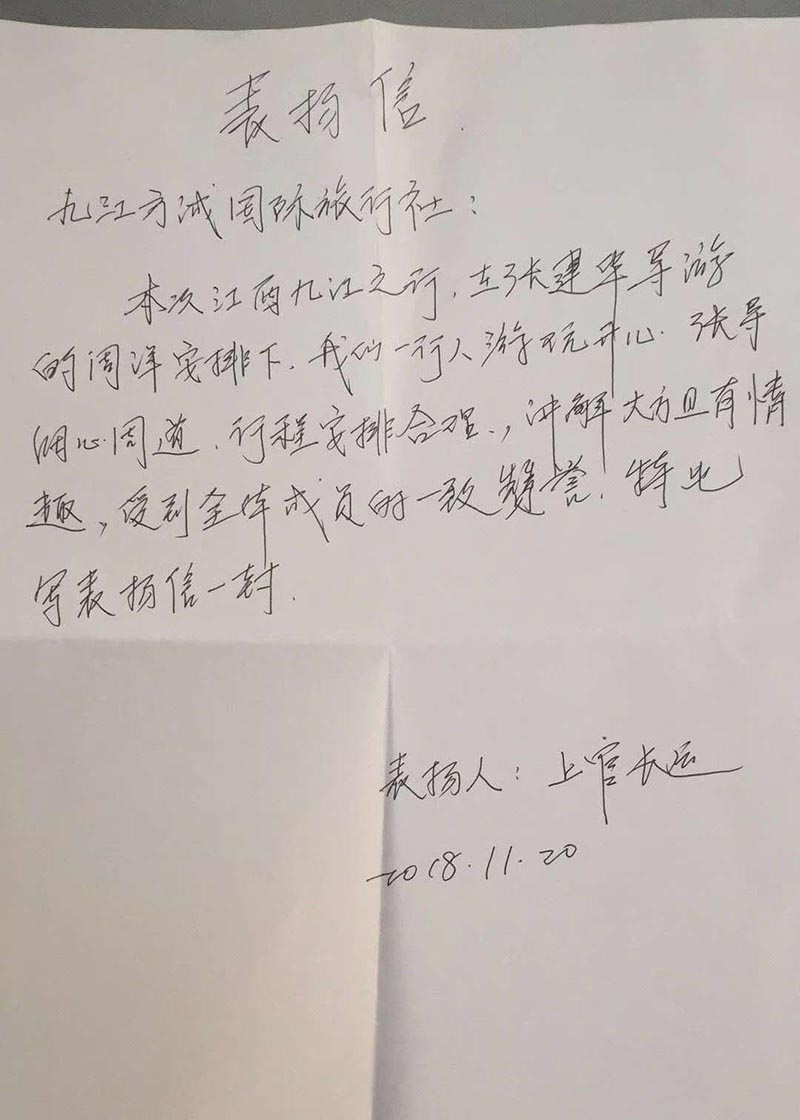 表扬信.
九江方诚国际旅行社：
本次江西九江之行，在张建华导游
的周详安排下，我们一行人游玩开心．张导
细心周道，行程安排合理，，讲解大方且有情
趣，受到全体成员的一致赞誉，特此
写表扬信一封．
表扬人：上官长运
2018.11.20